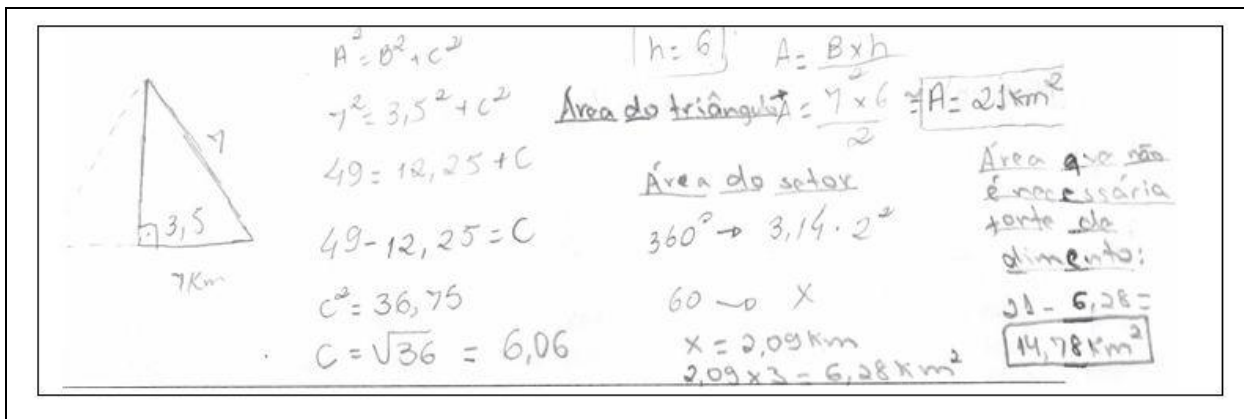 7
3,5
7Km
A² = B² + C²
7² = 3,5² + C²
49 = 12,25 + C
49 - 12,25 = C
C² = 36,75
C = √36 = 6,06
h = 6
A = B x h
2
Área do triângulo A = 7 x 6 = A = 21 Km²
2
Área do setor
360° → 3,14 . 2²
60 → X
X = 2,09 Km
2,09 x 3 = 6,28 Km²
Área que não
é necessária
fonte de
alimento:
21 - 6,28 =
14,78 Km²